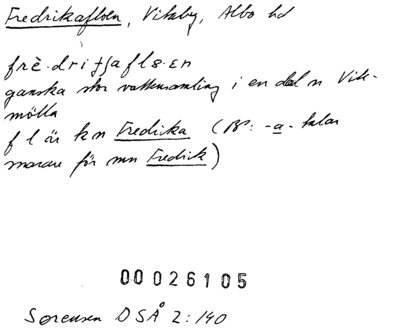 Fredrikaflsen, Vitaby, Albo hd
frè.drikafls.ɛn
ganska stor vattensamling i en dal n Vik-
mölla
f l är kn Fredrika (BP: -a- talar
snarare för mn Fredrik)
00026105
Sørensen DSÅ 2:140